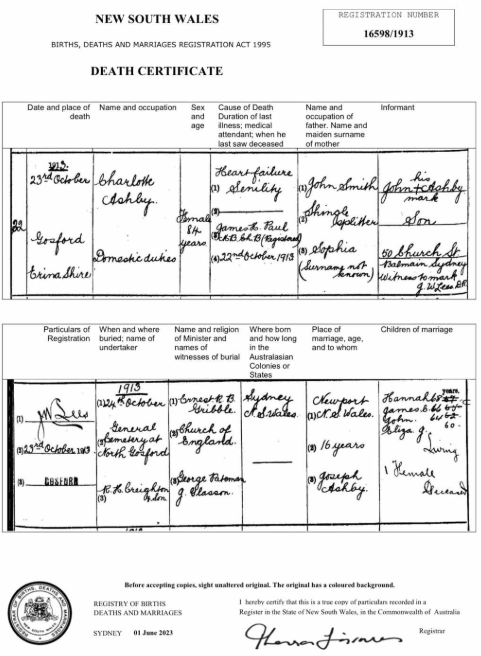 NEW SOUTH WALES
REGISTRATION NUMBER
16598/1913
BIRTHS, DEATHS AND MARRIAGES REGISTRATION ACT 1995
DEATH CERTIFICATE
Date and place of death
Name and occupation
Sex and age
Cause of Death
Duration of last illness; medical attendant; when he last saw deceased
Name and occupation of father. Name and maiden surname of mother
Informant
22
1913.
23rd October
Gosford
Erina Shire
Charlotte
Ashby.
Domestic duties
Female
84
years
Heart failure
(1) Senility
(2)
James H. Paul
(3) (Registered)
(4) 22nd October 1913
(1) John Smith
(2) Shingle
Splitter
(3) Sophia
(Surname not
known)
his
John + Ashby
mark
Son
50 Church St
Balmain, Sydney
Witness to mark
J. W. Lees. D.R.
Particulars of Registration
When and where buried; name of undertaker
Name and religion of Minister and names of witnesses of burial
Where born and how long in the Australasian Colonies or States
Place of marriage, age, and to whom
Children of marriage
(1) JW Lees
(2) 23rd October 1913
(3) GOSFORD
1913
(1) 24th October
General
(2) Cemetery at
North Gosford
R. H. Creighton
(3) & Son
(1) Ernest R. B.
Gribble.
(2) Church of
England.
(3) George Bateman
J. Glasson.
Sydney
N.S. Wales.
Newport
(1) N.S. Wales.
(2) 16 years
(3) Joseph
Ashby.
years.
Hannah 68
James B. 66
John. 64
Eliza J. 60
Living
1 Female
Deceased
Before accepting copies, sight unaltered original. The original has a coloured background.
REGISTRY OF BIRTHS
DEATHS AND MARRIAGES
SYDNEY 01 June 2023
I hereby certify that this is a true copy of particulars recorded in a
Register in the State of New South Wales, in the Commonwealth of Australia
Registrar
REGISTRY OF BIRTHS DEATHS AND MARRIAGES
NEW SOUTH WALES